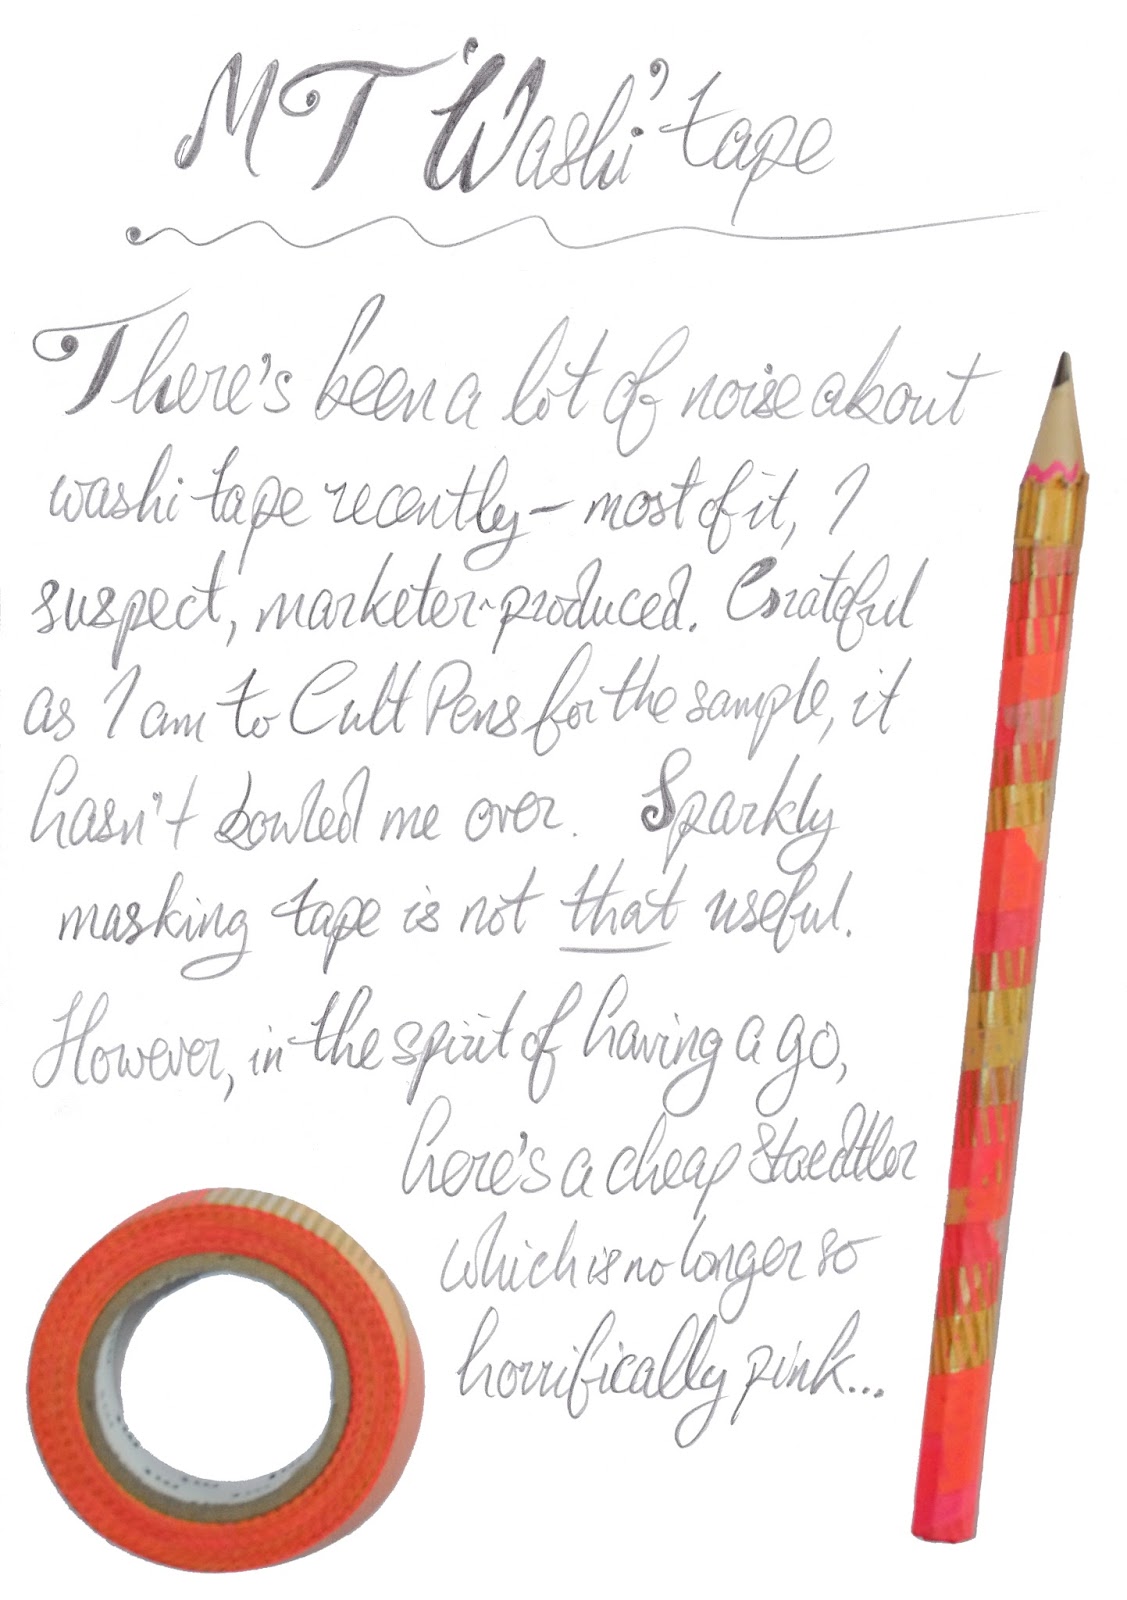 MT 'Washi' tape
There's been a lot of noise about
washi tape recently – most of it, I
suspect, marketer-produced. Grateful
as I am to Cult Pens for the sample, it
hasn't bowled me over. Sparkly
masking tape is not that useful.
However, in the spirit of having a go,
here's a cheap Staedtler
which is no longer so
horrifically pink...